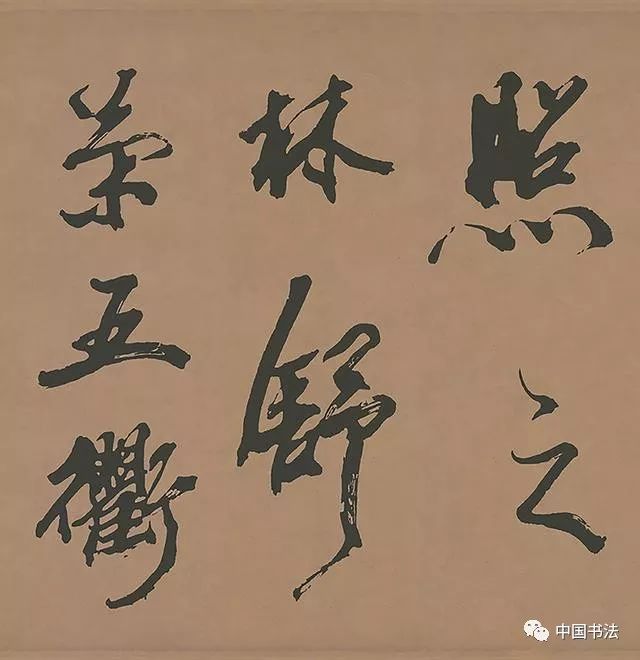 照之
林舒
荣五衢
中国书法